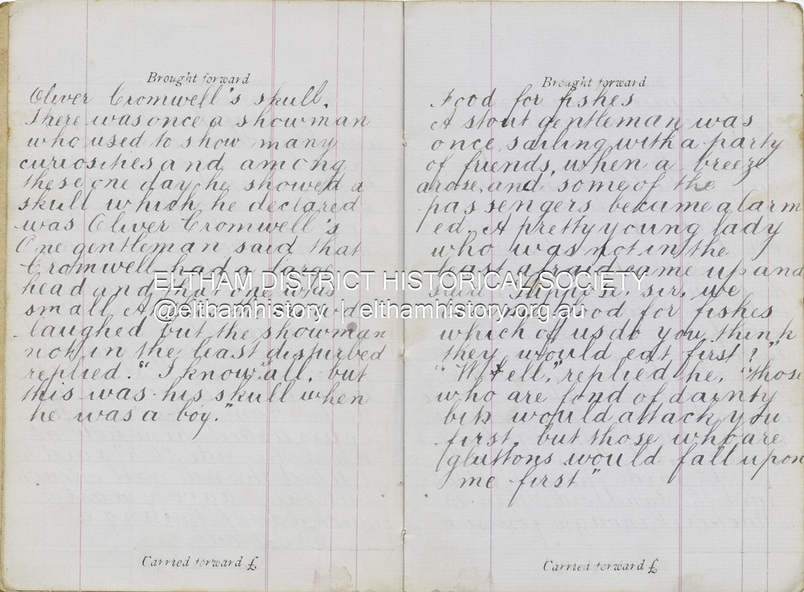 Brought forward
Oliver Cromwell's skull.
There was once a showman
who used to show many
curiosities and among
these one day he showed a
skull which he declared
was Oliver Cromwell's
One gentleman said that
Cromwell had a large
head and that one was
small. At this the
laughed but the showman
not in the least disturbed
replied. "I know all, but
this was his skull when
he was a boy."
Carried forward £
Brought forward
Food for fishes
A stout gentleman was
once sailing with a party
of friends, when a breeze
arose, and some of the
passengers became alarm
ed. A pretty young lady
who was not in the
least afraid came up and
said "Suppose, sir, we
food for fishes
which of us do you think
they would eat first?"
"Well," replied he, "those
who are fond of dainty
bits would attack you
first, but those who are
gluttons would fall upon
me first"
Carried forward £
ELTHAM DISTRICT HISTORICAL SOCIETY
@elthamhistory | elthamhistory.org.au